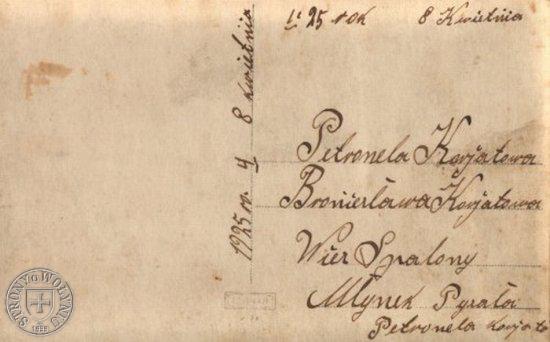 1925 rok 8 Kwietnia
1925 r. 8 Kwietnia
Petronela Korjatowa
Bronierława Korjatowa
Wier Spalony
Młynek Pyrała
Petronela Korjato
STRONY O WOŁYNIU